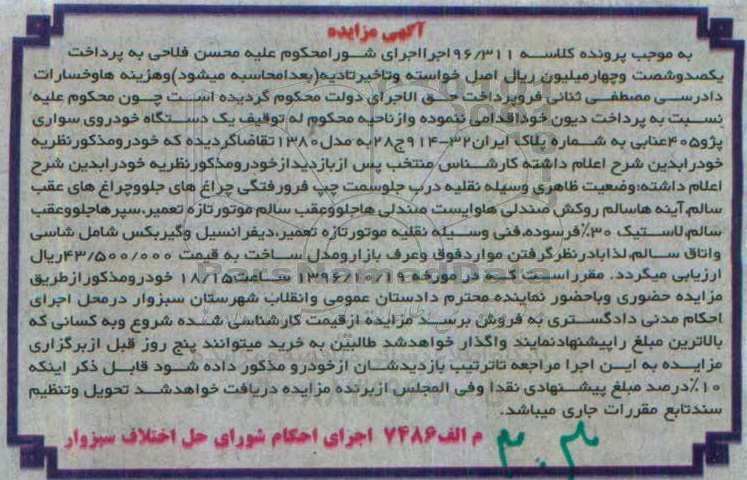 آگهی مزایده
به موجب پرونده کلاسه ۹۶/۳۱۱اجرااجرای شورامحکوم علیه محسن فلاحی به پرداخت
یکصدوشصت وچهارمیلیون ریال اصل خواسته وتاخیرتادیه(بعدامحاسبه میشود)وهزینه هاوخسارات
دادرسی مصطفی ثنائی فروپرداخت حق الاجرای دولت محکوم گردیده است چون محکوم علیه
نسبت به پرداخت دیون خوداقدامی ننموده وازناحیه محکوم له توقیف یک دستگاه خودروی سواری
پژو۴۰۵عنابی به شماره پلاک ایران۳۲-۹۱۴ج۲۸به مدل۱۳۸۰تقاضاگردیده که خودرومذکورنظریه
خودرابدین شرح اعلام داشته کارشناس منتخب پس ازبازدیدازخودرومذکورنظریه خودرابدین شرح
اعلام داشته:وضعیت ظاهری وسیله نقلیه درب جلوسمت چپ فرورفتگی چراغ های جلووچراغ های عقب
سالم.آینه هاسالم روکش صندلی هاوایست صندلی هاجلووعقب سالم موتورتازه تعمیر،سپرهاجلووعقب
سالم،لاستیک ۳۰٪فرسوده،فنی وسیله نقلیه موتورتازه تعمیر،دیفرانسیل وگیربکس شامل شاسی
واتاق سالم.لذابادرنظرگرفتن مواردفوق وعرف بازارومدل ساخت به قیمت ۴۳/۵۰۰/۰۰۰ریال
ارزیابی میگردد. مقرراست که درمورخه ۱۳۹۶/۱۰/۱۹ ساعت۱۸/۱۵ خودرومذکورازطریق
مزایده حضوری وباحضور نماینده محترم دادستان عمومی وانقلاب شهرستان سبزوار درمحل اجرای
احکام مدنی دادگستری به فروش برسد مزایده ازقیمت کارشناسی شده شروع وبه کسانی که
بالاترین مبلغ راپیشنهادنمایند واگذار خواهدشد طالبین به خرید میتوانند پنج روز قبل ازبرگزاری
مزایده به این اجرا مراجعه تاترتیب بازدیدشان ازخودرو مذکور داده شود قابل ذکر اینکه
۱۰٪درصد مبلغ پیشنهادی نقدا وفی المجلس ازبرنده مزایده دریافت خواهدشد تحویل وتنظیم
سندتابع مقررات جاری میباشد.
م الف۷۴۸۶ اجرای احکام شورای حل اختلاف سبزوار
ParsNamadData